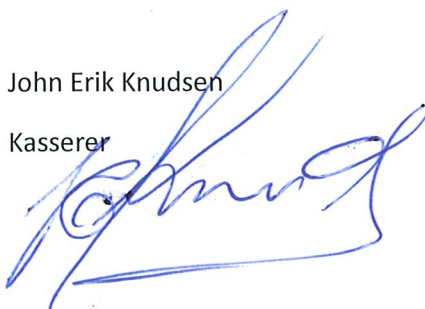 John Erik Knudsen
Kasserer